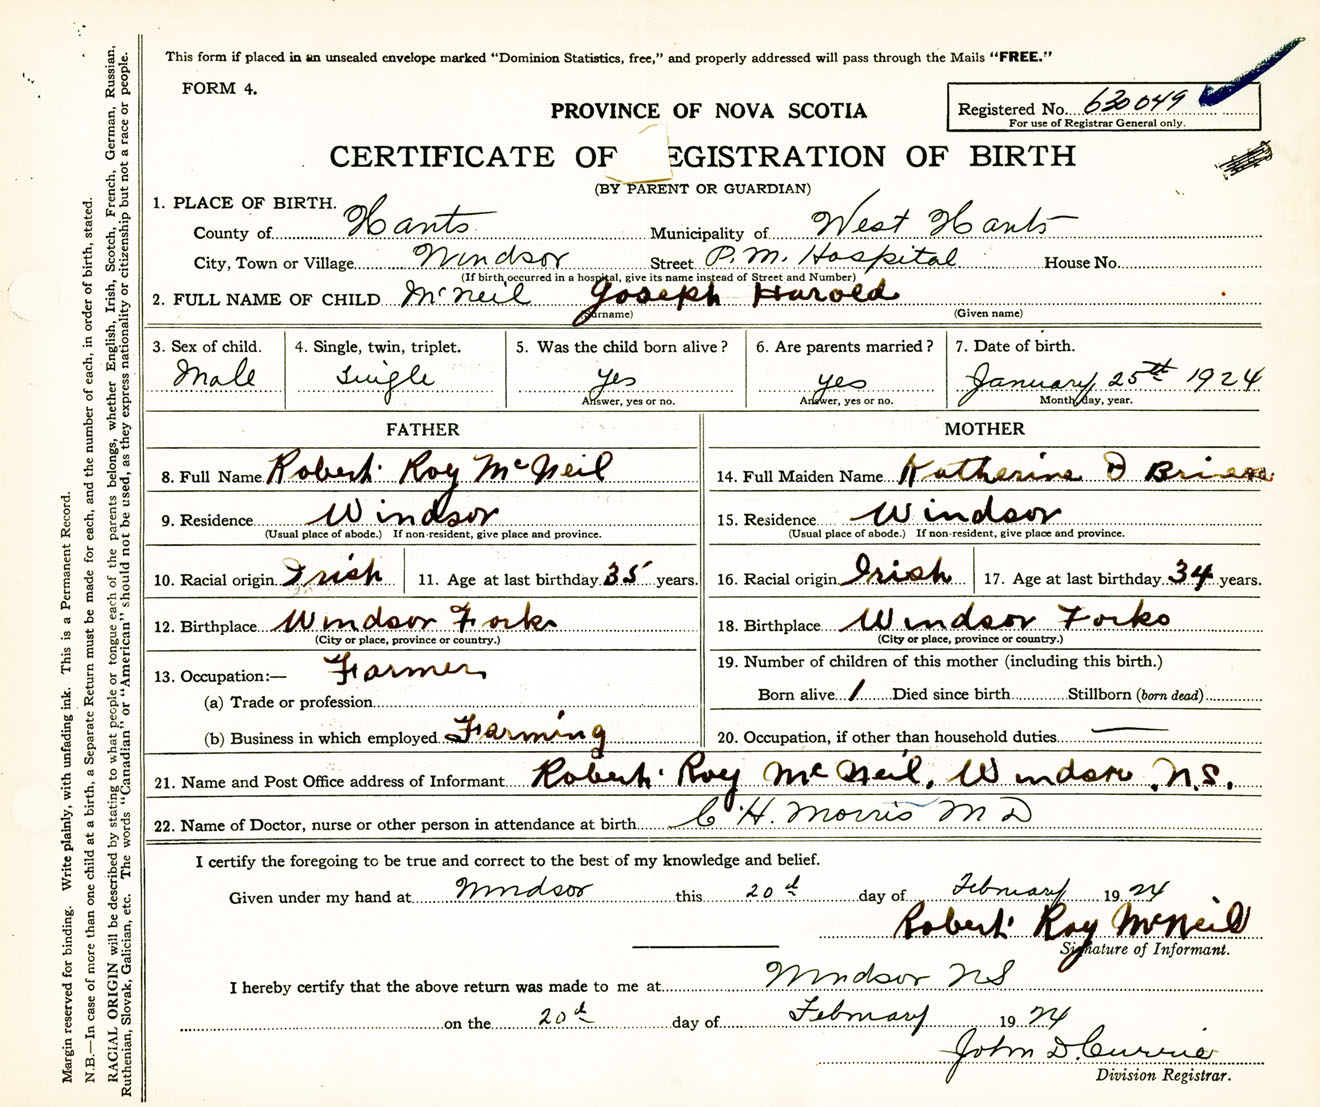 This form if placed in an unsealed envelope marked "Dominion Statistics, free," and properly addressed will pass through the Mails "FREE."
FORM 4.
Registered No. 630049
For use of Registrar General only.
PROVINCE OF NOVA SCOTIA
CERTIFICATE OF EGISTRATION OF BIRTH
(BY PARENT OR GUARDIAN)
1. PLACE OF BIRTH.
County of Hants Municipality of West Hants
City, Town or Village Windsor Street P.M. Hospital House No.
(If birth occurred in a hospital, give its name instead of Street and Number)
2. FULL NAME OF CHILD McNeil Joseph Harold
(Surname) (Given name)
3. Sex of child. 4. Single, twin, triplet. 5. Was the child born alive? 6. Are parents married? 7. Date of birth.
Male Single Yes Yes January 25th 1924
Answer, yes or no. Answer, yes or no. Month, day, year.
FATHER MOTHER
8. Full Name Robert Roy McNeil 14. Full Maiden Name Katherine O Brien
9. Residence Windsor 15. Residence Windsor
(Usual place of abode.) If non-resident, give place and province. (Usual place of abode.) If non-resident, give place and province.
10. Racial origin Irish 11. Age at last birthday 35 years. 16. Racial origin Irish 17. Age at last birthday 34 years.
12. Birthplace Windsor Forks 18. Birthplace Windsor Forks
(City or place, province or country.) (City or place, province or country.)
13. Occupation:— Farmer 19. Number of children of this mother (including this birth.)
(a) Trade or profession Born alive 1 Died since birth Stillborn (born dead)
(b) Business in which employed Farming 20. Occupation, if other than household duties —
21. Name and Post Office address of Informant Robert Roy McNeil, Windsor, N.S.
22. Name of Doctor, nurse or other person in attendance at birth C. H. Morris M D
I certify the foregoing to be true and correct to the best of my knowledge and belief.
Given under my hand at Windsor this 20d day of February 1924
Robert Roy McNeil
Signature of Informant.
I hereby certify that the above return was made to me at Windsor NS
on the 20d day of February 1924
John D. Currie
Division Registrar.
Margin reserved for binding. Write plainly, with unfading ink. This is a Permanent Record.
N.B.—In case of more than one child at a birth, a Separate Return must be made for each, and the number of each, in order of birth, stated.
RACIAL ORIGIN will be described by stating to what people or tongue each of the parents belongs, whether English, Irish, Scotch, French, German, Russian,
Ruthenian, Slovak, Galician, etc. The words "Canadian" or "American" should not be used, as they express nationality or citizenship but not a race or people.